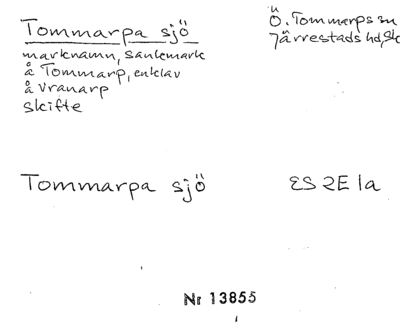 Tommarpa sjö
marknamn, sankmark
å Tommarp, enklav
å Vranarp
skifte
Ö. Tommarps sn
Järrestads hd, Sk
Tommarpa sjö
ES 2E 1a
Nr 13855